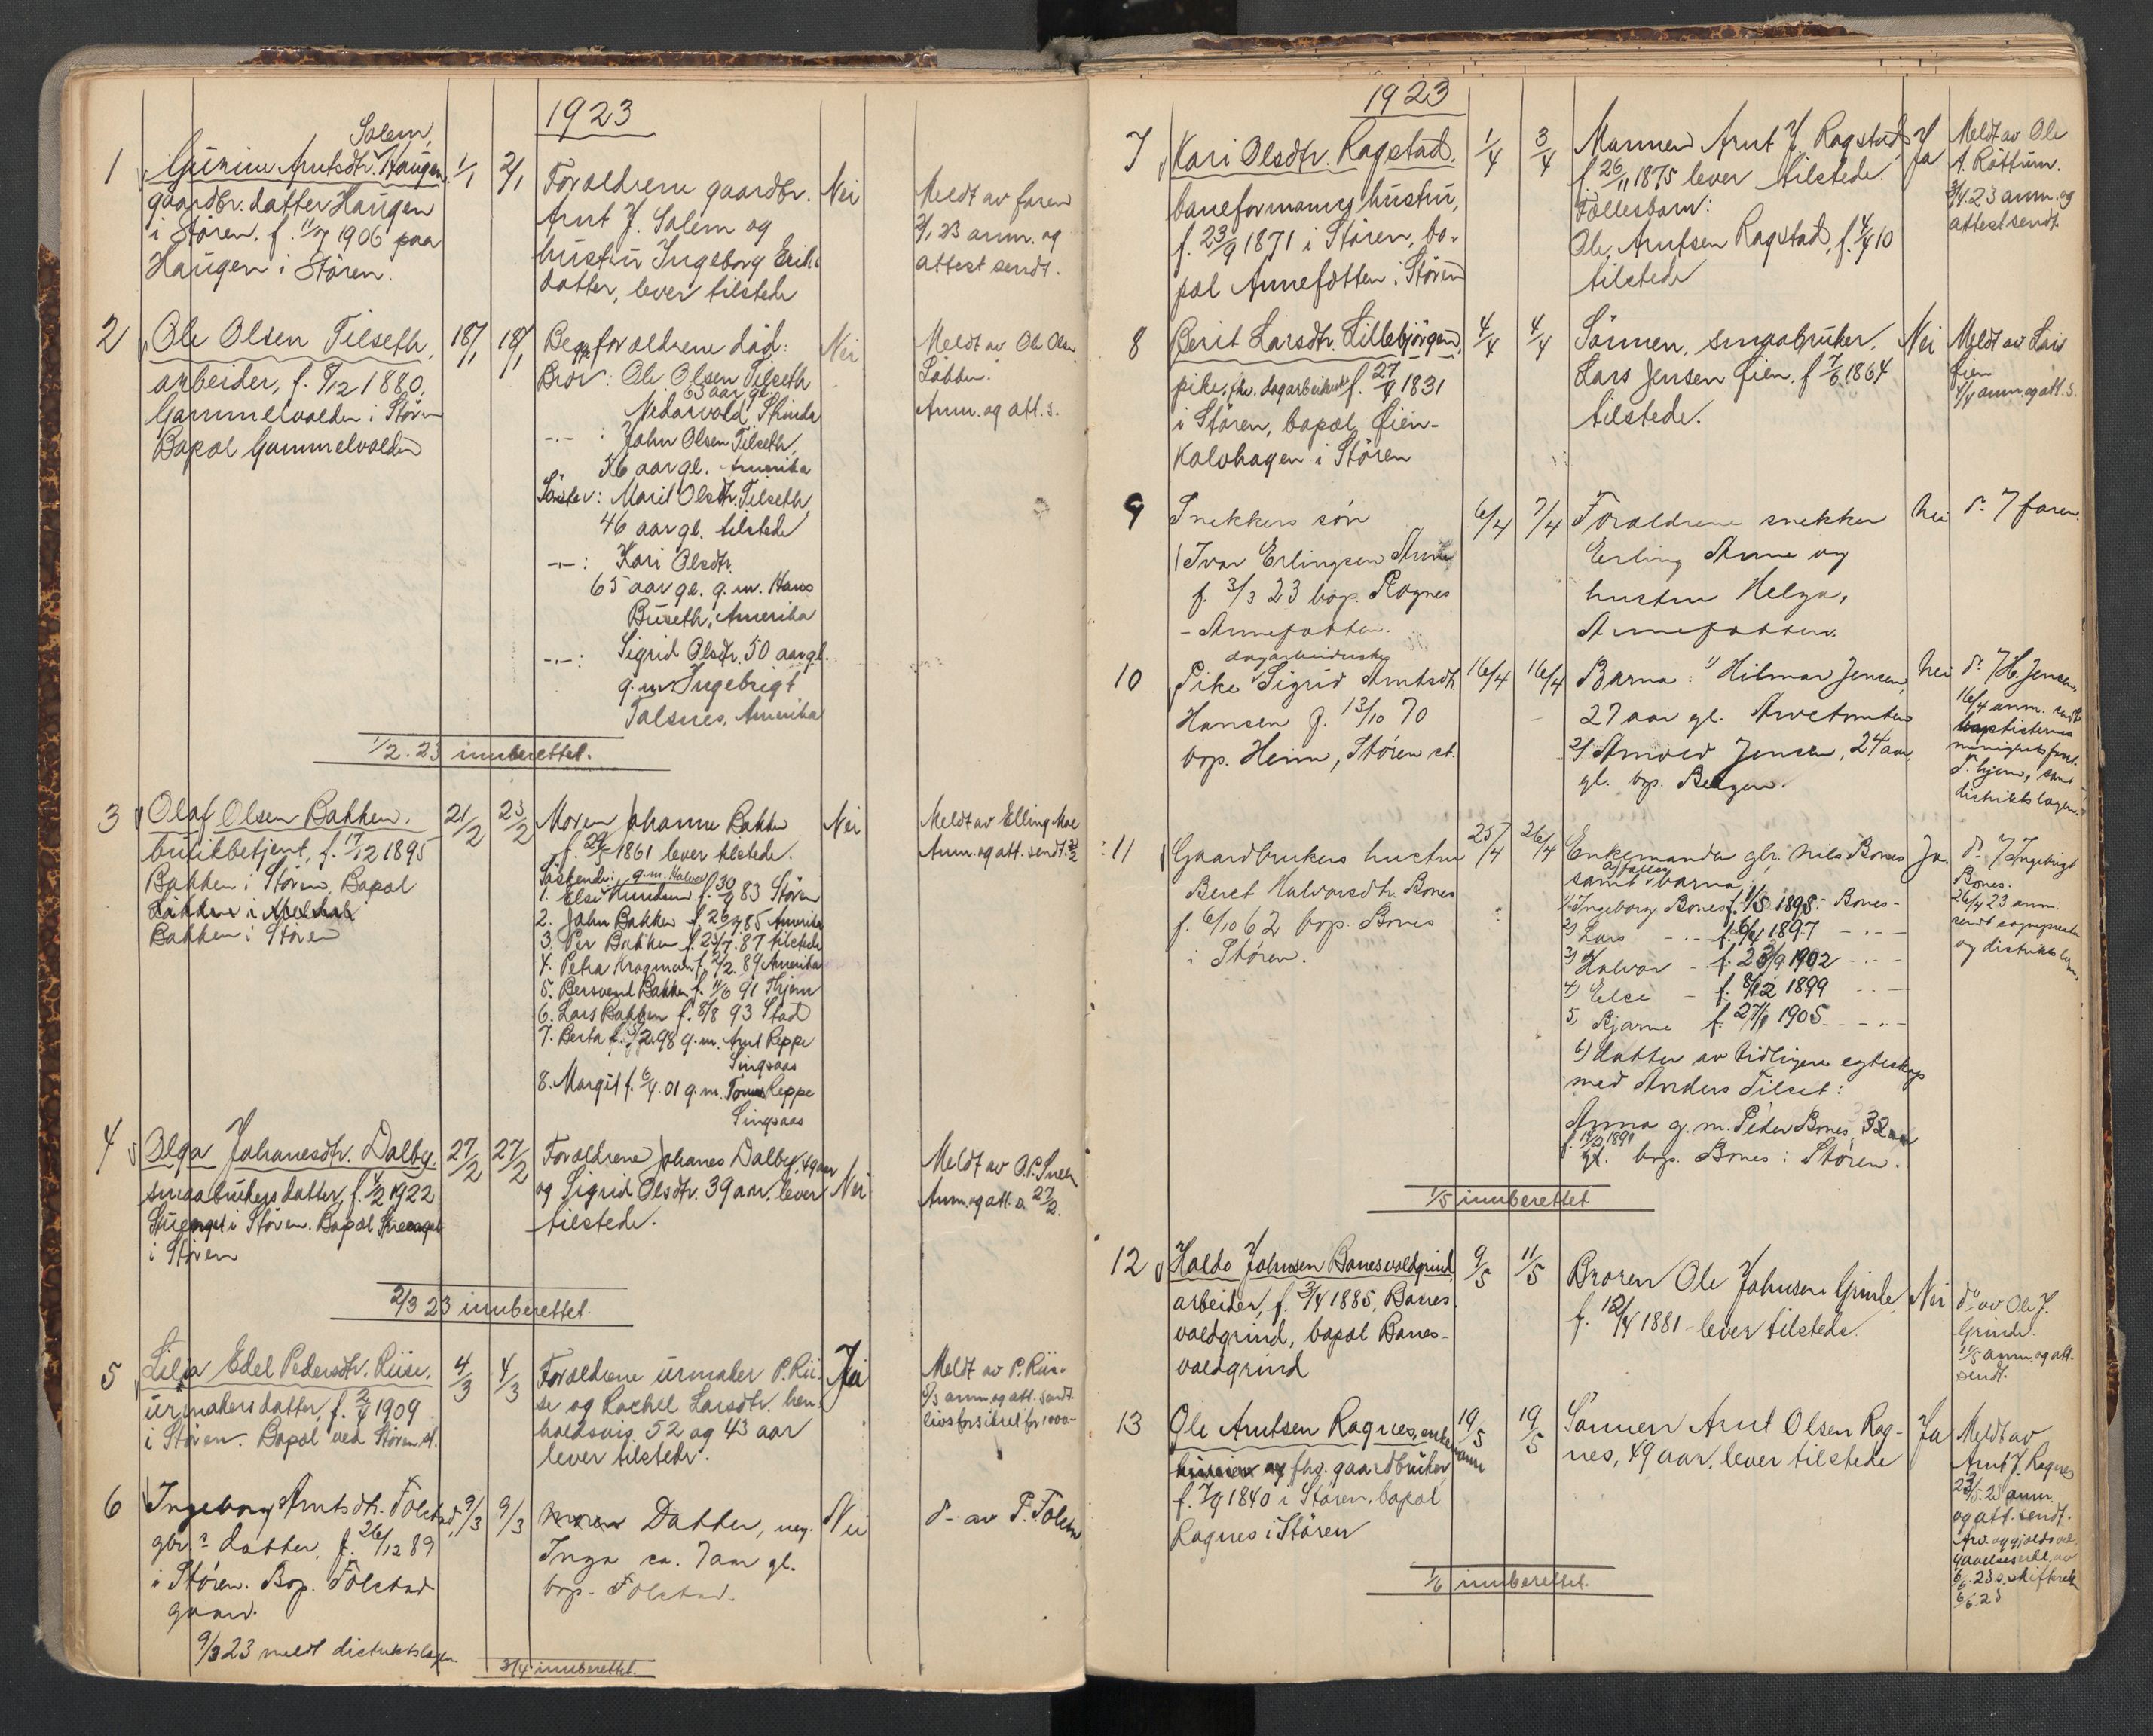 1923
1
Salem,
Gurine Arntsdtr. Haugen
gaardbr. datter Haugen
i Støren. f. 1906 paa
Haugen i Støren.
1/1
2/1
Forældrene gaardbr.
Arnt J. Salem og
hustru Ingeborg Eriks
datter, lever tilstede
Nei
Meldt av faren
2/1 23 anm. og
attest sendt.
2
Ole Olsen Tilseth,
arbeider, f. 8/12 1880,
Gammelvolden i Støren
Bopæl Gammelvolden
18/1
18/1
Begge forældrene død:
Bror: Ole Olsen Tilseth
63 aar gl.
Nedarvold, Strinda
-"- : John Olsen Tilseth,
56 aar gl. Amerika
Søster: Marit Olsdtr. Tilseth,
46 aar gl. tilstede
-"- : Kari Olsdtr.
65 aar gl. g.m. Hans
Buseth, Amerika
-"- : Sigrid Olsdtr. 50 aar gl.
g.m. Ingebrigt
Talsnes, Amerika
Nei
Meldt av Ole Olsen
Løbben.
Anm. og att. s.
1/2. 23 innberettet.
3
Olaf Olsen Bakken.
butikbetjent, f. 17/12 1895
Bakken i Støren, Bopæl
Bakken i Støren
21/2
23/2
Moren Johanne Bakken
f. 29/5 1861 lever tilstede.
Søskende: g.m. Halvor
1. Else Kunidum f. 30/9 83 Støren
2. John Bakken f. 26/7 85 Amerika
3. Per Bakken f. 23/7. 87 tilstede
4. Petra Krogman f. 2/2. 89 Amerika
5. Bersvend Bakken f. 11/6 91 Thjem
6. Lars Bakken f. 8/8 93 Stod
7. Berta f. 5/2. 98 g.m. Arnt Reppe
Singsaas
8. Margit f. 6/4. 01 g.m. Tomas Reppe
Singsaas
Nei
Meldt av Elling Moe
Anm. og att. sendt. 23/2
4
Olga Johanesdtr. Dalby.
smaabrukers datter, f. 4/2 1922
i Støren. Bopæl
i Støren
27/2
27/2
Forældrene Johanes Dalby, 49 aar
og Sigrid Olsdtr. 39 aar. lever
tilstede.
Nei
Meldt av O.P. Sneen
Anm. og att. s. 27/2.
2/3 23 innberettet.
5
Lilja Edel Pedersdtr. Riise.
urmakers datter, f. 2/4 1909
i Støren. Bopæl ved Støren st.
4/3
4/3
Forældrene urmaker P. Rii-
se og Rachel Larsdtr. hen-
holdsvis. 52 og 43 aar
lever tilstede.
Ja
Meldt av P. Riise
5/3 anm. og att. sendt.
livsforsikret for 1000-
6
Ingeborg Arntsdtr. Folstad,
gbr.s datter, f. 26/12 89
i Støren. Bop. Folstad
gaard.
9/3 23 meldt distriktslægen.
9/3
9/3
Datter, ung.
Inga ca. 7 aar gl.
bop. Folstad.
Nei
do av P. Folstad
3/4 innberettet.
1923
7
Kari Olsdtr. Ragstad.
baneformanns hustru,
f. 23/9 1871 i Støren, bo-
pæl Annefotten i Støren
1/4
3/4
Mannen Arnt J. Ragstad,
f. 26/11 1875 lever tilstede.
Fællesbarn:
Ole Arntsen Ragstad, f. 4/4 10
tilstede
Ja
Meldt av Ole
A. Røttum.
3/4.23 anm. og
attest sendt.
8
Berit Larsdtr. Lillebjørgen,
pike, fhv. dagarbeiderske f. 27/4 1831
i Støren, bopæl Øien-
Kalvhagen i Støren
4/4
4/4
Sønnen, smaabruker.
Lars Jensen Øien, f. 7/6 1864
tilstede.
Nei
Meldt av Lars
Øien
4/4 anm. og att. s.
9
Snekkers søn
Ivar Erlingsen Anne
f. 3/3 23 bop. Rognes
- Annefotten.
6/4
7/4
Forældrene snekker
Erling Anne og
hustru Helga,
Annefotten.
Nei
do faren.
10
dagarbeiderske
Pike Sigrid Arntsdtr.
Hansen f. 13/10 70
bop. Heim, Støren st.
16/4
16/4
Barna: 1) Hilmar Jensen,
27 aar gl.
2) Arnold Jensen, 24 aar
gl. bop. Bergen.
Nei
do H. Jensen,
16/4 anm. sendt
baptisternes
T.hjem, samt
distriktslægen.
11
Gaardbrukers hustru
Beret Halvorsdtr. Bones
f. 6/10 62 bop. Bones
i Støren.
25/4
26/4
Enkemanden gbr. Nils Bones
samt barna:
1) Ingeborg Bones f. 1/5 1895 - Bones -
2) Lars f. 6/4 1897
3) Halvor f. 23/9 1902
4) Else f. 8/12 1899
5) Bjarne f. 27/1 1905
6) datter av tidligere egteskap
med Anders Tilset:
Anna g.m. Peder Bones, 32 aar
gl. bop. Bones i Støren.
Ja.
do Ingebrigt
Bones.
26/4 23 anm.
sendt sogneprest
og distriktslægen.
1/5 innberettet
12
Haldo Johnsen Bonesvoldgrind,
arbeider, f. 3/4 1885, Bones-
voldgrind, bopæl Bones-
voldgrind
9/5
11/5
Broren Ole Johnsen Grinde
f. 12/4 1881 - lever tilstede.
Nei
do av Ole J.
Grinde.
11/5 anm. og att.
sendt.
13
Ole Arntsen Rognes, enkemann
fhv. gaardbruker,
f. 7/9 1840 i Støren, bopæl
Rognes i Støren
19/5
19/5
Sønnen Arnt Olsen Rog-
nes, 49 aar, lever tilstede
Ja
Meldt av
Arnt J. Rognes
23/5. 23 anm.
og att. sendt.
Arv. og gjældsved-
gaaelseserkl. av
6/6. 23 s. skifteretten
6/6. 23
1/6 innberettet.